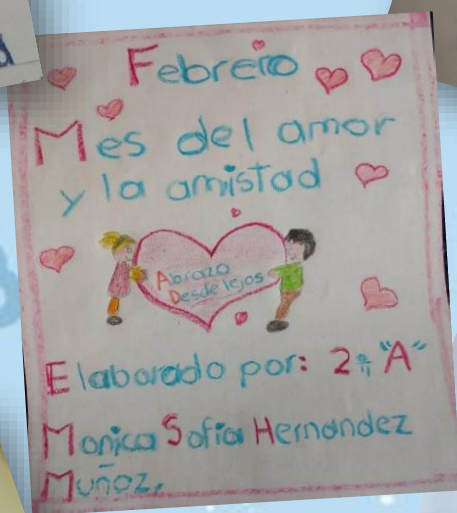 Febrero
Mes del amor
y la amistad
Abrazo
Desde lejos
Elaborado por: 2° "A"
Monica Sofia Hernandez
Muñoz.